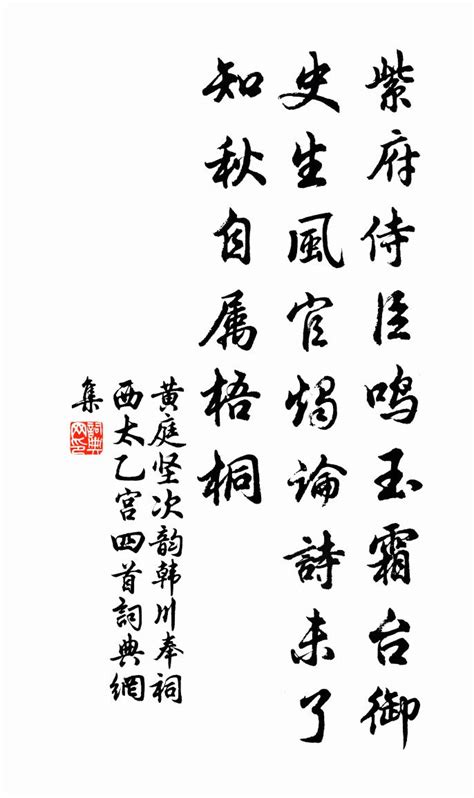 紫府侍臣鸣玉霜台御
史生風官燭論詩未了
知秋自属梧桐
黄庭坚次韵韩川奉祠
西太乙宫四首詞典網
集